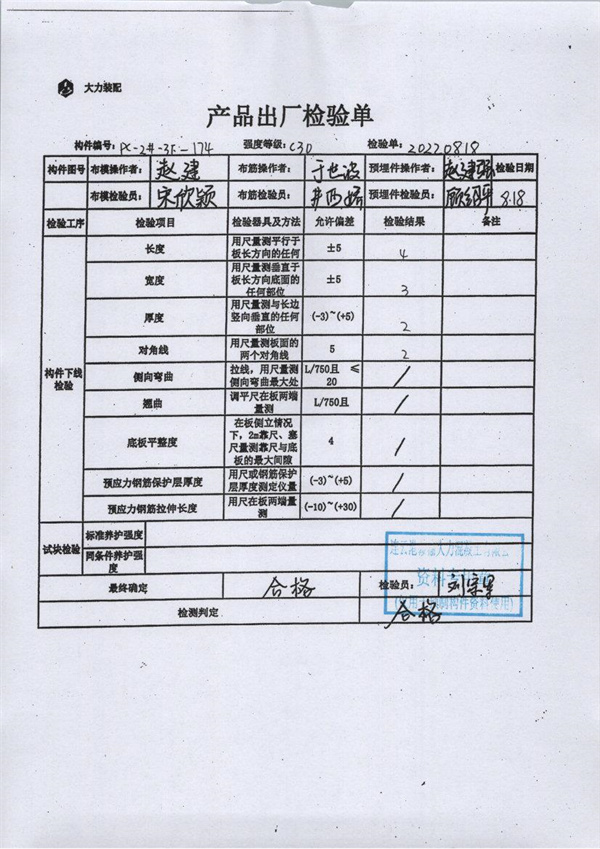 大力装配
产品出厂检验单
构件编号: PC-2#-3F-174 强度等级: C30 检验单: 20220818
构件图号 布模操作者: 赵建 布筋操作者: 于世波 预埋件操作者: 赵建强 检验日期
布模检验员: 宋欣颖 布筋检验员: 预埋件检验员: 8.18
检验工序 检验项目 检验器具及方法 允许偏差 检验结果 备注
构件下线检验
长度 用尺量测平行于板长方向的任何 ±5 4
宽度 用尺量测垂直于板长方向底面的任何部位 ±5 3
厚度 用尺量测与长边竖向垂直的任何部位 (-3)~(+5) 2
对角线 用尺量测板面的两个对角线 5 2
侧向弯曲 拉线，用尺量测侧向弯曲最大处 L/750且 ≤20 /
翘曲 调平尺在板两端量测 L/750且 /
底板平整度 在板侧立情况下，2m靠尺、塞尺量测靠尺与底板的最大间隙 4 /
预应力钢筋保护层厚度 用尺或钢筋保护层厚度测定仪量 (-3)~(+5) /
预应力钢筋拉伸长度 用尺在板两端量测 (-10)~(+30) /
试块检验 标准养护强度
同条件养护强度
最终确定 合格 检验员:
检测判定 合格